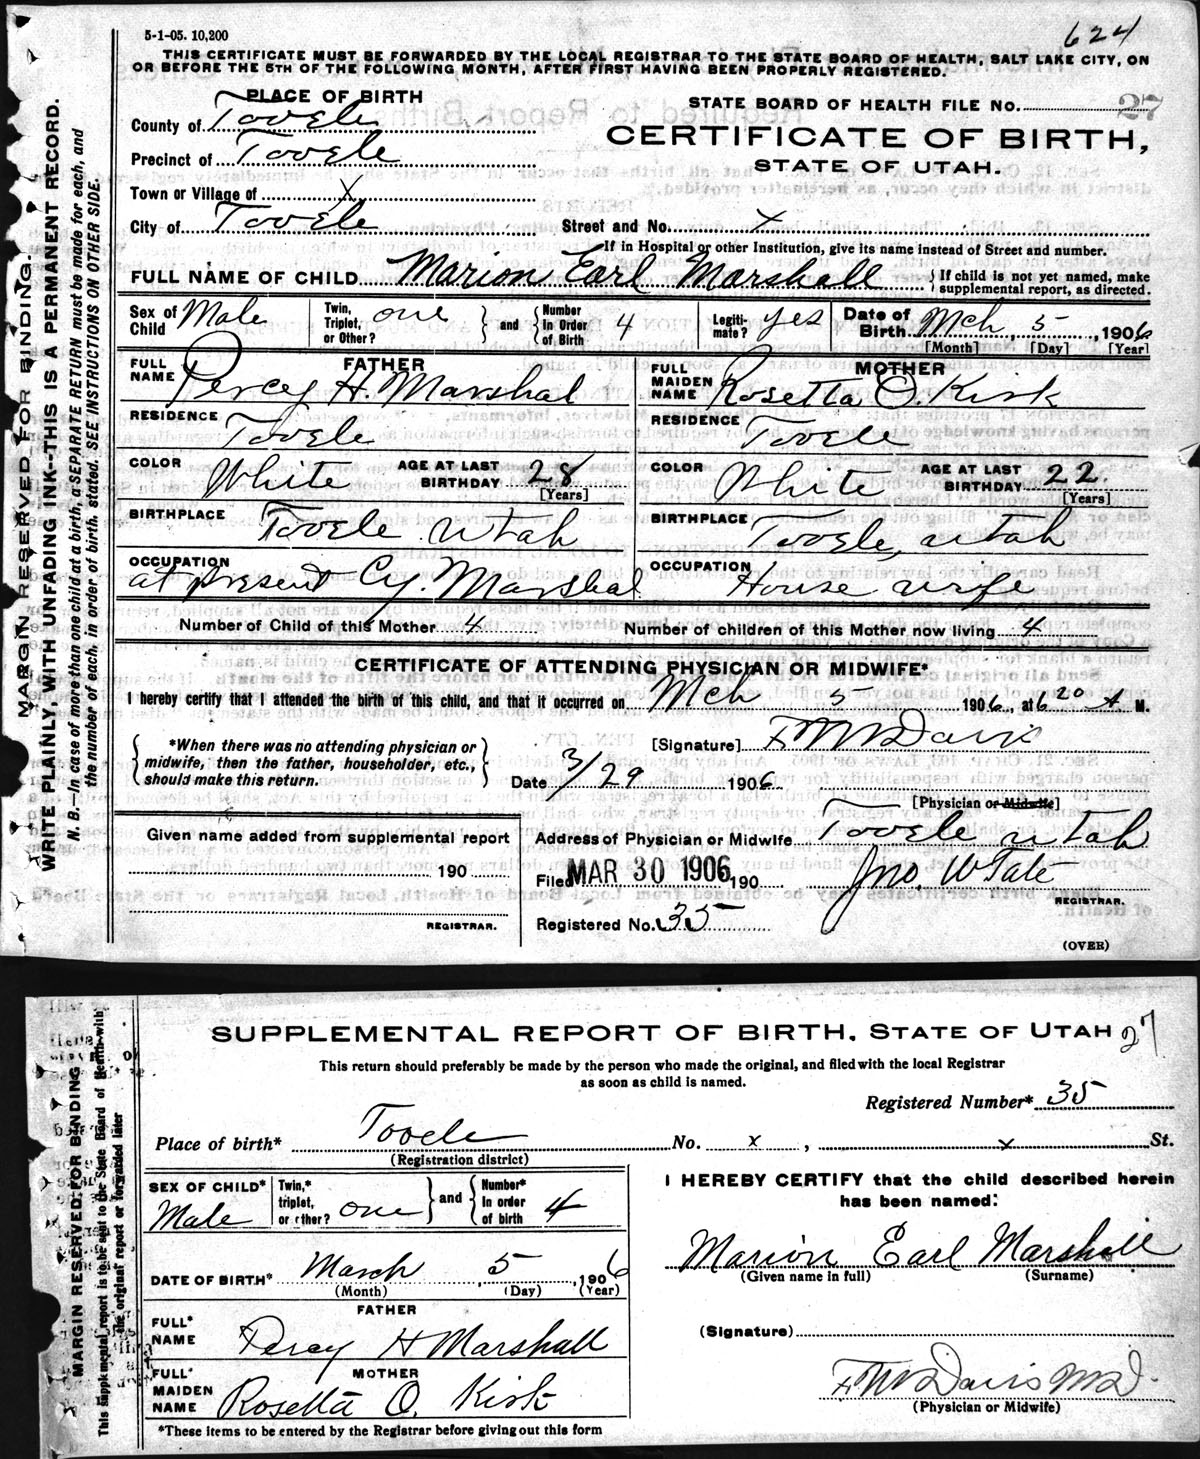 5-1-05. 10,200
624
THIS CERTIFICATE MUST BE FORWARDED BY THE LOCAL REGISTRAR TO THE STATE BOARD OF HEALTH, SALT LAKE CITY, ON
OR BEFORE THE 5TH OF THE FOLLOWING MONTH, AFTER FIRST HAVING BEEN PROPERLY REGISTERED.
PLACE OF BIRTH
STATE BOARD OF HEALTH FILE NO. 27
County of Tooele
CERTIFICATE OF BIRTH,
Precinct of Tooele
STATE OF UTAH.
Town or Village of X
City of Tooele Street and No. X
If in Hospital or other Institution, give its name instead of Street and number.
FULL NAME OF CHILD Marion Earl Marshall { If child is not yet named, make supplemental report, as directed.
Sex of Child Male Twin, Triplet, or Other? one } and { Number in Order of Birth 4 Legitimate? yes Date of Birth Mch 5, 1906
[Month] [Day] [Year]
FATHER MOTHER
FULL NAME Percey H. Marshal FULL MAIDEN NAME Rosetta O. Kirk
RESIDENCE Tooele RESIDENCE Tooele
COLOR White AGE AT LAST BIRTHDAY 28 [Years] COLOR White AGE AT LAST BIRTHDAY 22. [Years]
BIRTHPLACE Tooele Utah BIRTHPLACE Tooele, Utah
OCCUPATION at present Cy. Marshal OCCUPATION House wife
Number of Child of this Mother 4 Number of children of this Mother now living 4
CERTIFICATE OF ATTENDING PHYSICIAN OR MIDWIFE*
I hereby certify that I attended the birth of this child, and that it occurred on Mch 5 1906, at 6 20 A M.
{ *When there was no attending physician or midwife, then the father, householder, etc., should make this return. }
[Signature] F M Davis
Date 3/29 1906
[Physician or Midwife]
Given name added from supplemental report
190
REGISTRAR.
Address of Physician or Midwife Tooele Utah
Filed MAR 30 1906 190 Jno. W Tate
REGISTRAR.
Registered No. 35
(OVER)
MARGIN RESERVED FOR BINDING.
WRITE PLAINLY, WITH UNFADING INK—THIS IS A PERMANENT RECORD.
N. B.—In case of more than one child at a birth, a SEPARATE RETURN must be made for each, and
the number of each, in order of birth, stated. SEE INSTRUCTIONS ON OTHER SIDE.
SUPPLEMENTAL REPORT OF BIRTH, STATE OF UTAH 27
This return should preferably be made by the person who made the original, and filed with the local Registrar
as soon as child is named.
Registered Number* 35
Place of birth* Tooele No. x, x St.
(Registration district)
SEX OF CHILD* Male Twin,* triplet, or other? one } and { Number* in order of birth 4
I HEREBY CERTIFY that the child described herein
has been named:
Marion Earl Marshall
(Given name in full) (Surname)
DATE OF BIRTH* March 5, 1906
(Month) (Day) (Year)
FATHER
FULL* NAME Percy H Marshall
(Signature)
MOTHER
FULL* MAIDEN NAME Rosetta O. Kirk
F M Davis MD.
(Physician or Midwife)
*These items to be entered by the Registrar before giving out this form
MARGIN RESERVED FOR BINDING
This supplemental report is to be sent to the State Board of Health with
the original report or forwarded later